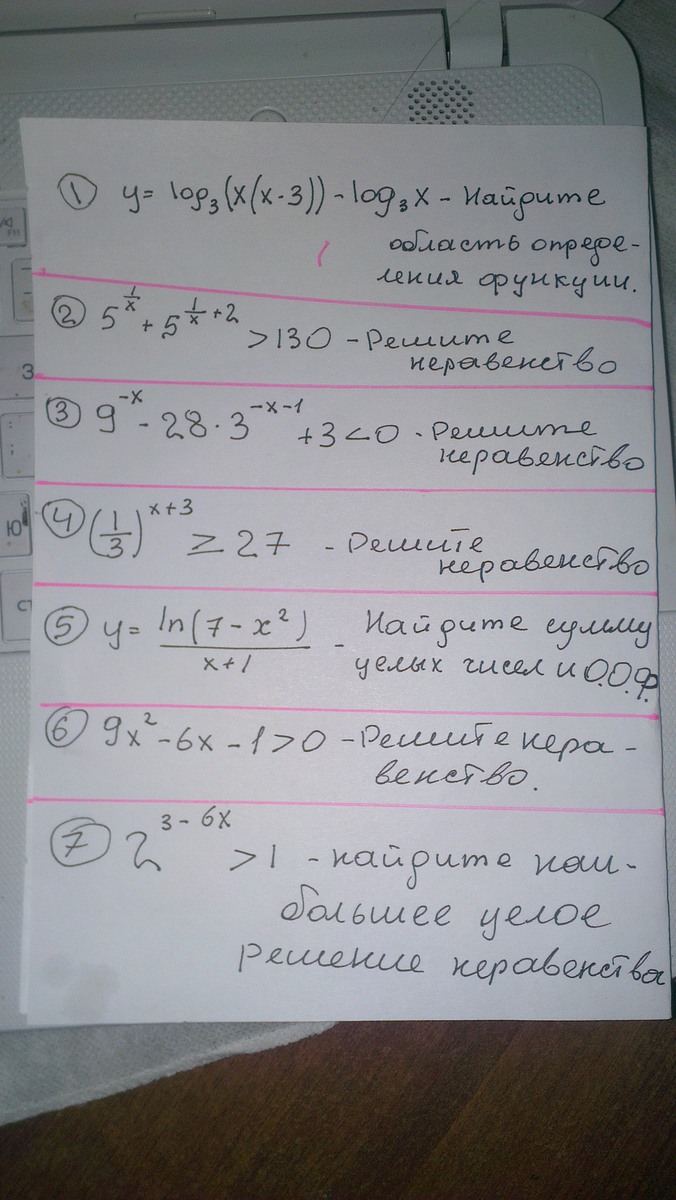 ① y = log₃(x(x-3)) - log₃x - Найдите
область опреде-
ления функции.
② 5^(1/x) + 5^(1/x + 2) > 130 - Решите
неравенство
③ 9^(-x) - 28 · 3^(-x-1) + 3 < 0 - Решите
неравенство
④ (1/3)^(x+3) ≥ 27 - Решите
неравенство
⑤ y = ln(7 - x²)/(x+1) - Найдите сумму
целых чисел и О.О.Ф.
⑥ 9x² - 6x - 1 > 0 - Решите нера-
венство.
⑦ 2^(3 - 6x) > 1 - найдите наи-
большее целое
решение неравенства